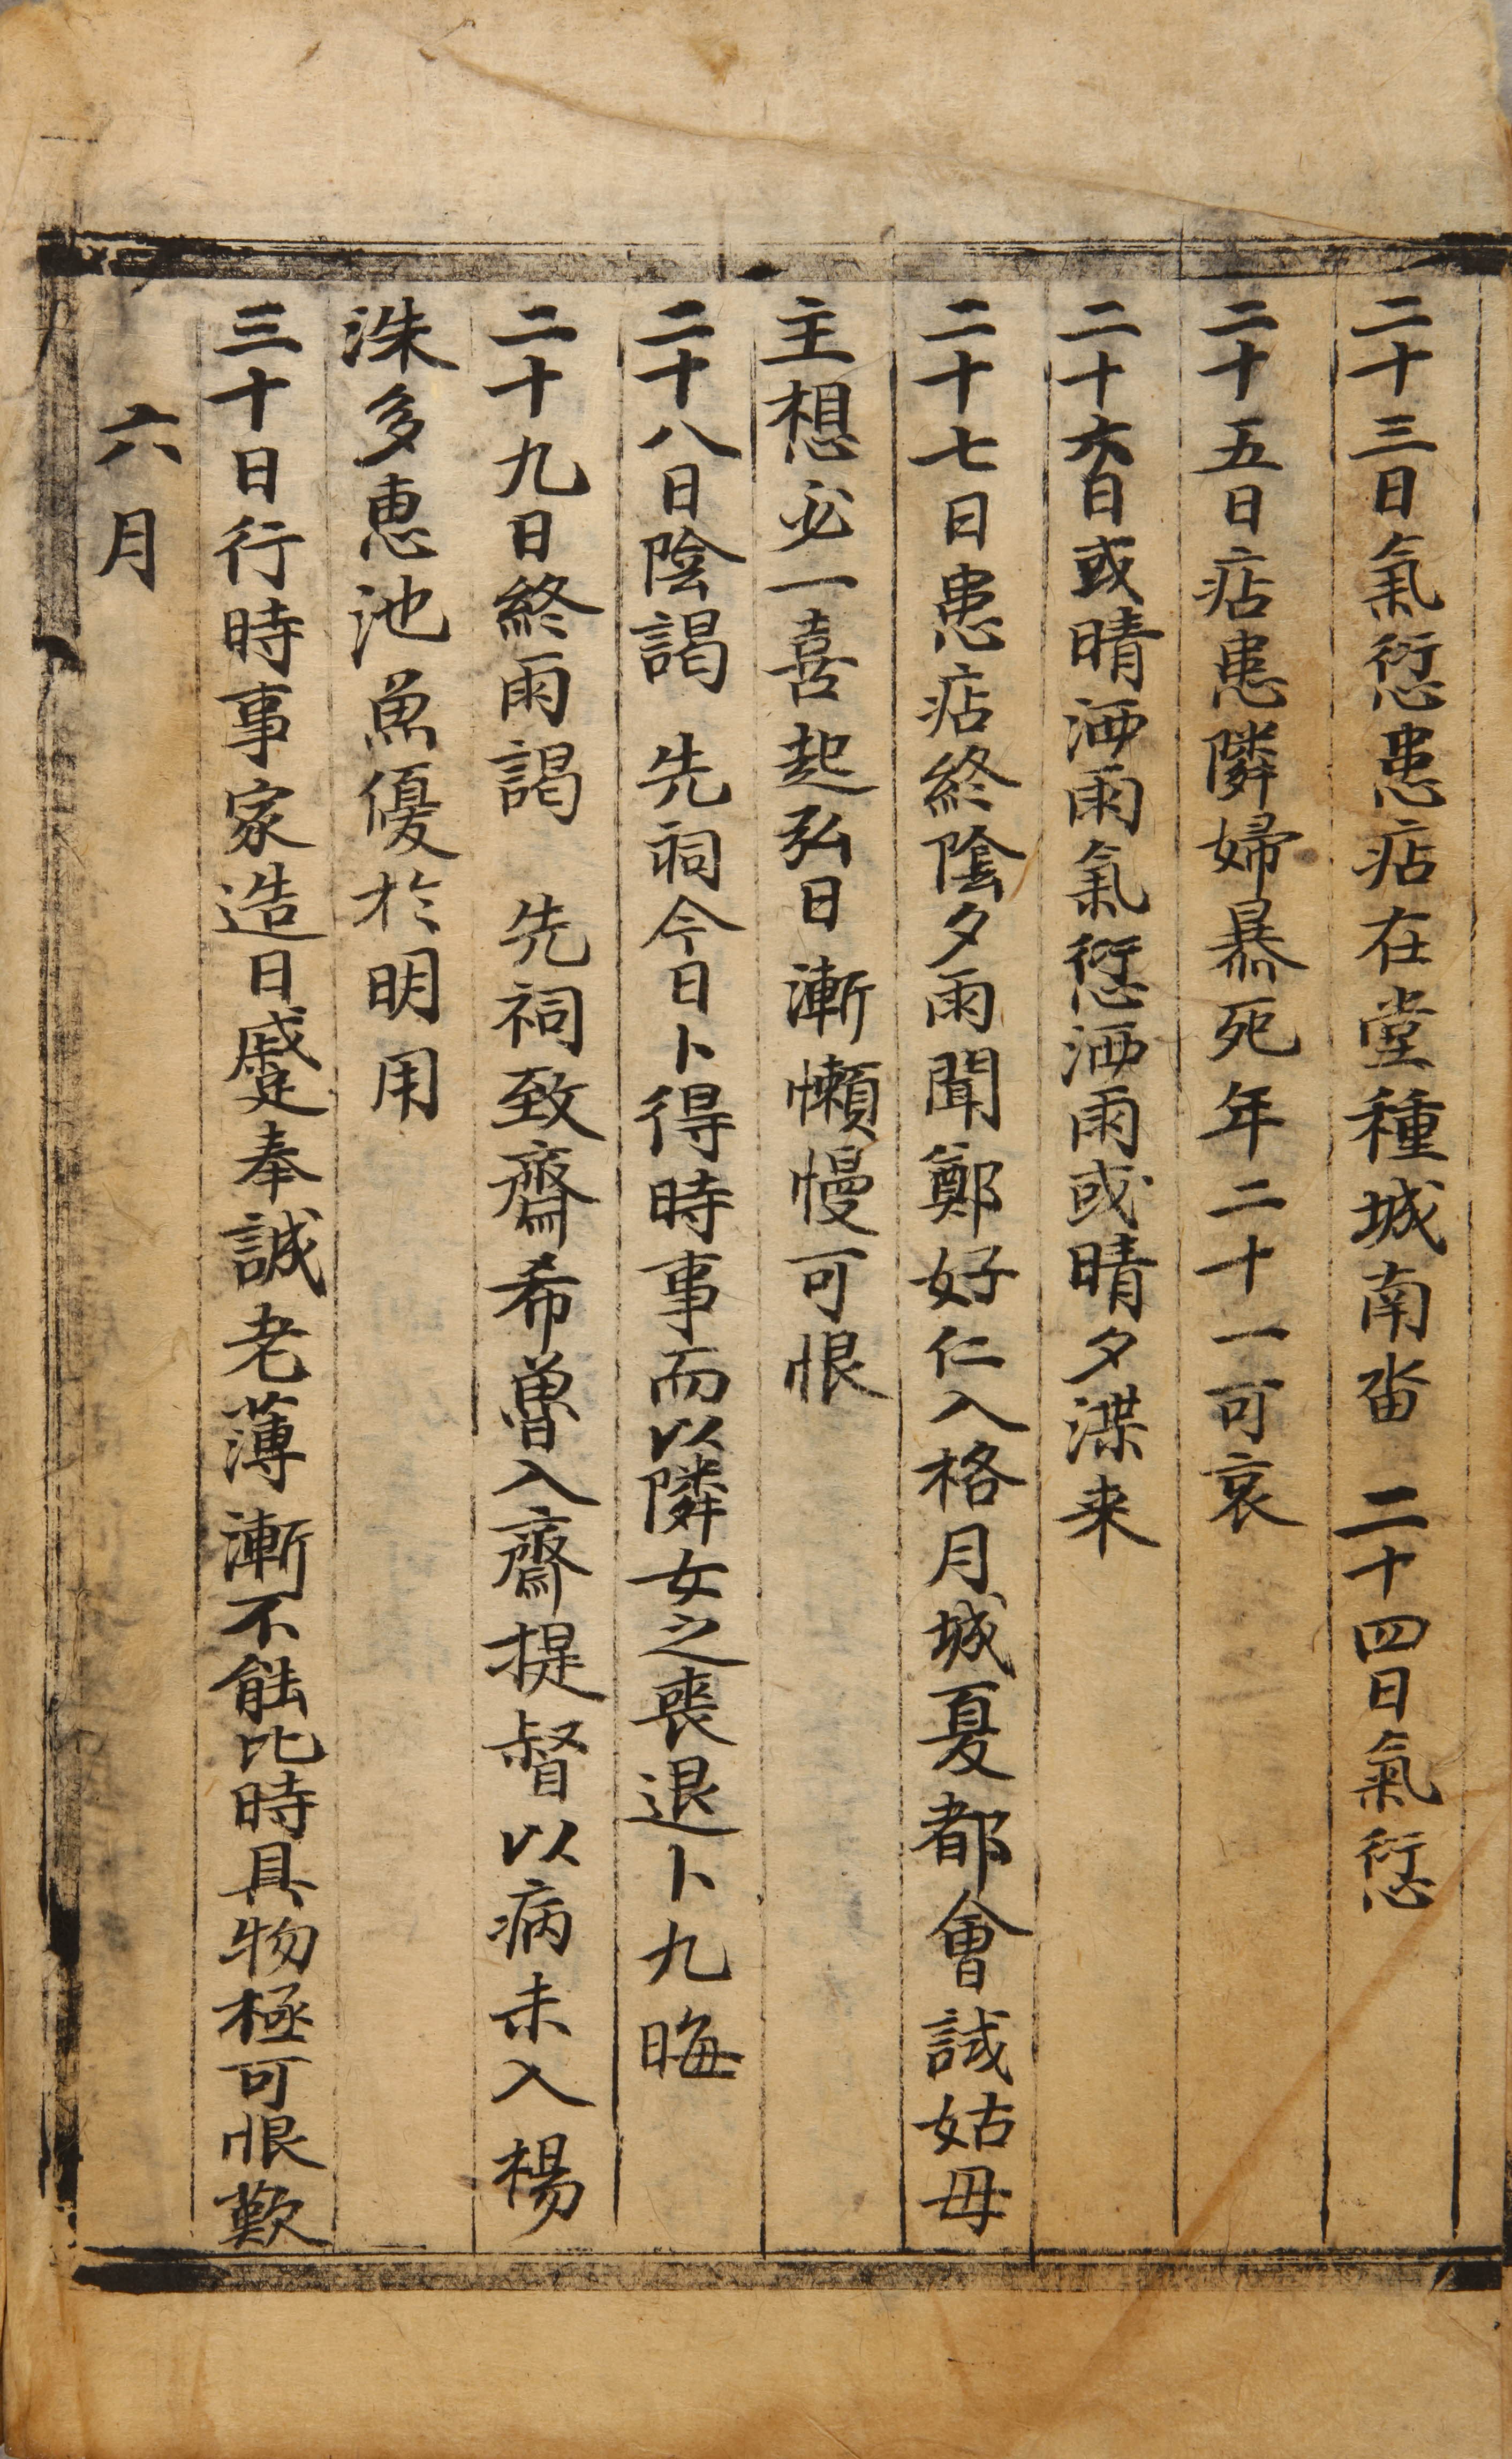 二十三日氣愆患痁在堂種城南畓 二十四日氣愆
二十五日痁患隣婦暴死年二十一可哀
二十六日或晴洒雨氣愆洒雨或晴夕渫来
二十七日患痁終陰夕雨聞鄭好仁入格月城夏都會試姑母
主想必一喜起弘日漸懶慢可恨
二十八日陰謁 先祠今日卜得時事而以隣女之喪退卜九晦
二十九日終雨謁 先祠致齋希曾入齋提督以病未入楊
洙多惠池魚優於明用
三十日行時事家造日蹙奉誠老薄漸不能比時具物極可恨歎
六月